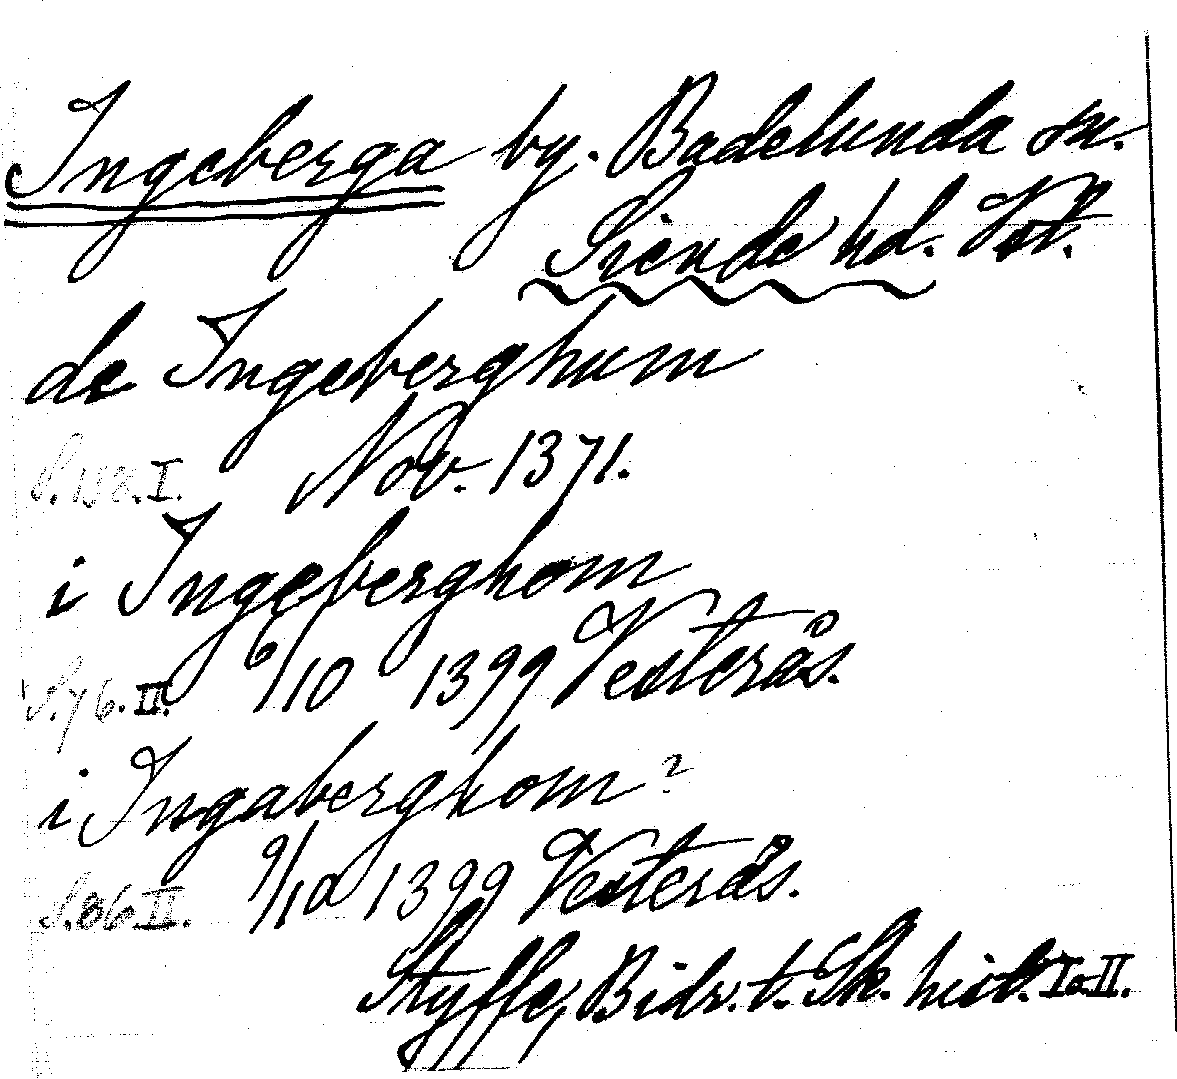 Ingeberga by. Badelunda sn.
Siende hd. Vstl.
de Ingeberghum
S. 158. I. Nov. 1371.
i Ingeberghom
S. 76. II. 6/10 1399 Vesterås.
i Ingaberghom ?
S. 86 II. 9/10 1399 Vesterås.
Styffe, Bidr. t. Sk. hist. I o. II.